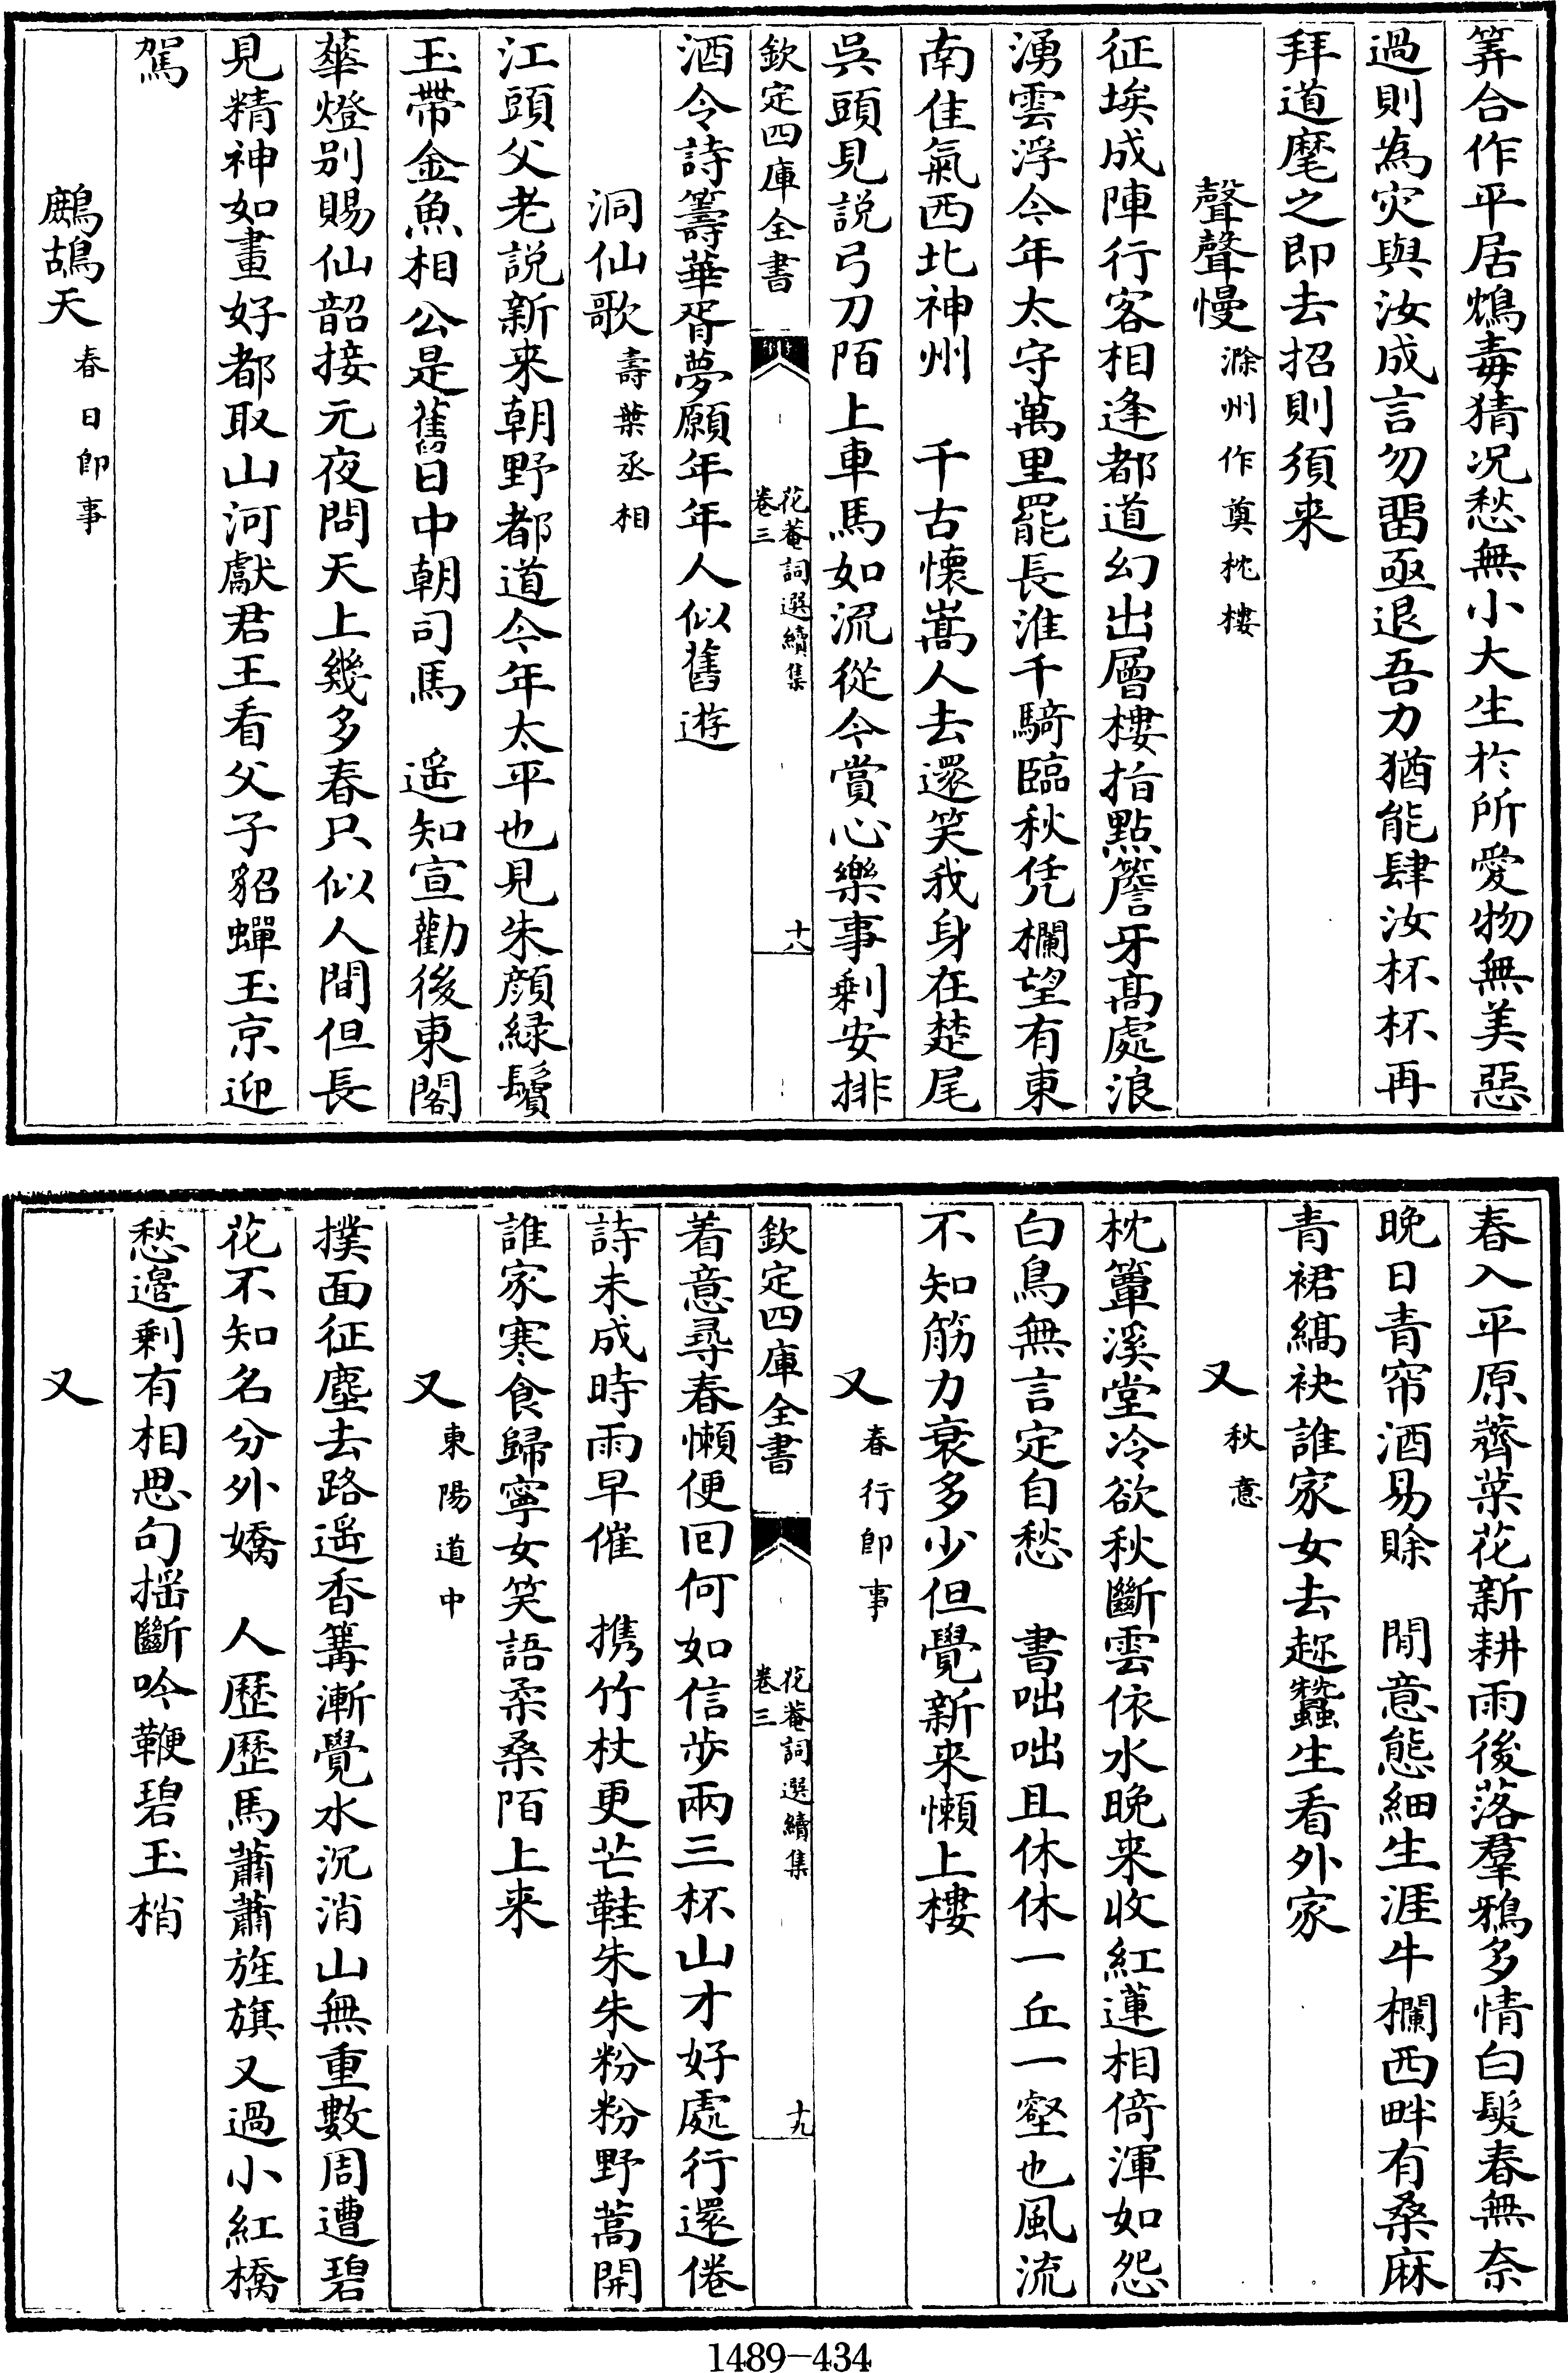 筭合作平居鴆毒猜况愁無小大生於所愛物無美惡
過則為灾與汝成言勿留亟退吾力猶能肆汝杯杯再
拜道麾之即去招則須来
聲聲慢滁州作奠枕樓
征埃成陣行客相逢都道幻出層樓指點簷牙髙處浪
湧雲浮今年太守萬里罷長淮千騎臨秋凭欄望有東
南佳氣西北神州　千古懷嵩人去還笑我身在楚尾
吳頭見説弓刀陌上車馬如流從今賞心樂事剰安排
欽定四庫全書　花菴詞選續集卷三　十八
酒令詩籌華胥夢願年年人似舊遊
洞仙歌壽葉丞相
江頭父老説新来朝野都道今年太平也見朱顔緑鬢
玉帶金魚相公是舊日中朝司馬　遥知宣勸後東閣
華燈别賜仙韶接元夜問天上幾多春只似人間但長
見精神如畫好都取山河獻君王看父子貂蟬玉京迎
駕
鷓鴣天春日即事
春入平原薺菜花新耕雨後落羣鴉多情白髮春無奈
晚日青帘酒易賒　閒意態細生涯牛欄西畔有桑麻
青裙縞袂誰家女去趂蠶生看外家
又秋意
枕簟溪堂冷欲秋斷雲依水晚来收紅蓮相倚渾如怨
白鳥無言定自愁　書咄咄且休休一丘一壑也風流
不知筋力衰多少但覺新来懶上樓
又春行即事
欽定四庫全書　花菴詞選續集卷三　十九
着意尋春懶便回何如信歩兩三杯山才好處行還倦
詩未成時雨早催　携竹杖更芒鞋朱朱粉粉野蒿開
誰家寒食歸寧女笑語柔桑陌上来
又東陽道中
撲面征塵去路遥香篝漸覺水沉消山無重數周遭碧
花不知名分外嬌　人歷歷馬蕭蕭旌旗又過小紅橋
愁邉剰有相思句揺斷吟鞭碧玉梢
又
1489-434